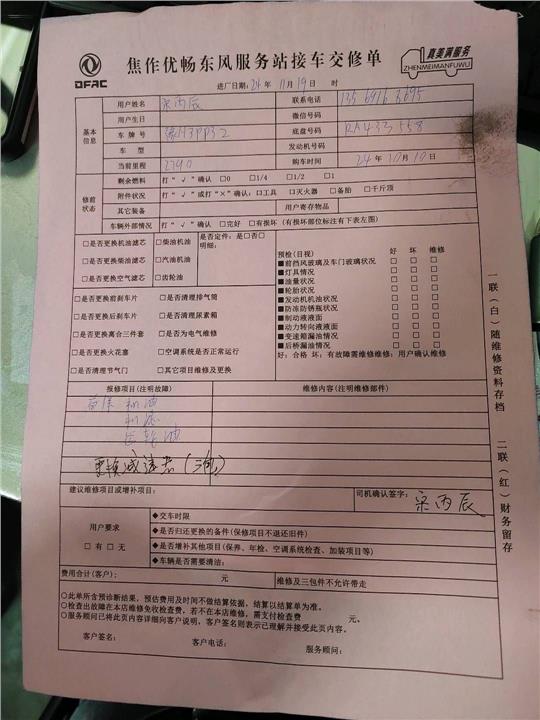 DFAC
焦作优畅东风服务站接车交修单
真美满服务
ZHENMEIMANFUWU
进厂日期:24年 11月19日 时
基本信息
用户姓名 宋丙辰 联系电话
用户生日 微信号码
车牌号 底盘号码 RA433558
车型 发动机号码
当前里程 2790 购车时间 24年10月10日
修前状态
剩余燃料 打“√”确认 □0 □1/4 □1/2 □1
附件状况 打“√”或打“×”确认:□工具 □灭火器 □备胎 □千斤顶
其它装备 用户寄存物品
车辆外部情况 打“√”确认 □完好 □有损坏(有损坏部位标注有下表左图)
□是否更换机油滤芯 □柴油机油 是否定件:是□否□
明细:
□是否更换柴油滤芯 □汽油机油
□是否更换空气滤芯 □齿轮油
□是否更换前刹车片 □是否清理排气筒
□是否更换后刹车片 □是否清理尿素箱
□是否更换离合三件套 □是否为电气维修
□是否更换火花塞 □空调系统是否正常运行
□是否清理节气门 □其它项目维修及更换
预检(目视) 好 坏 维修
■前挡风玻璃及车门玻璃状况 □ □ □
■灯具情况 □ □ □
■油量状况 □ □ □
■轮胎状况 □ □ □
■发动机机油状况 □ □ □
■防冻防锈瓶状况 □ □ □
■制动液液面 □ □ □
■动力转向液液面 □ □ □
■变速箱漏油情况 □ □ □
■后桥漏油情况 □ □ □
好:合格 坏:有故障需维修维修:用户确认维修
报修项目(注明故障) 维修内容(注明维修部件)
首保 机油
机滤
齿轮油
更换减速器
建议维修项目或增补项目: 司机确认签字: 宋丙辰
用户要求
□有 □无
◆交车时限
◆是否归还更换的备件(保修项目不退还旧件)
◆是否增补其他项目(保养、年检、空调系统检查、加装项目等)
◆车辆是否需要清洁:
费用合计(客户): 元 维修及三包件不允许带走
○此单所含预诊断结果,预估费用及时间不做结算依据,结算以结算单为准。
○检查出故障在本店维修免收检查费,若不在本店维修,需支付检查费 元。
○服务顾问已将此页内容详细向客户说明,客户签名则表示已理解并接受此页内容。
客户签名: 客户电话: 服务顾问:
一联(白)随维修资料存档 二联(红)财务留存